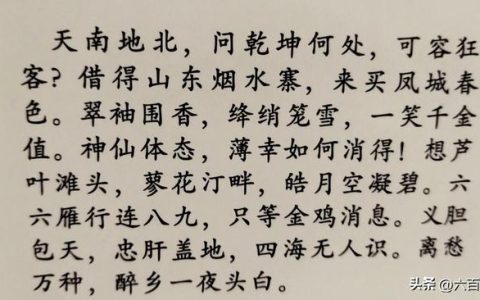 天南地北，问乾坤何处，可容狂
客？借得山东烟水寨，来买凤城春
色。翠袖围香，绛绡笼雪，一笑千金
值。神仙体态，薄幸如何消得！想芦
叶滩头，蓼花汀畔，皓月空凝碧。六
六雁行连八九，只等金鸡消息。义胆
包天，忠肝盖地，四海无人识。离愁
万种，醉乡一夜头白。
头条 @六百